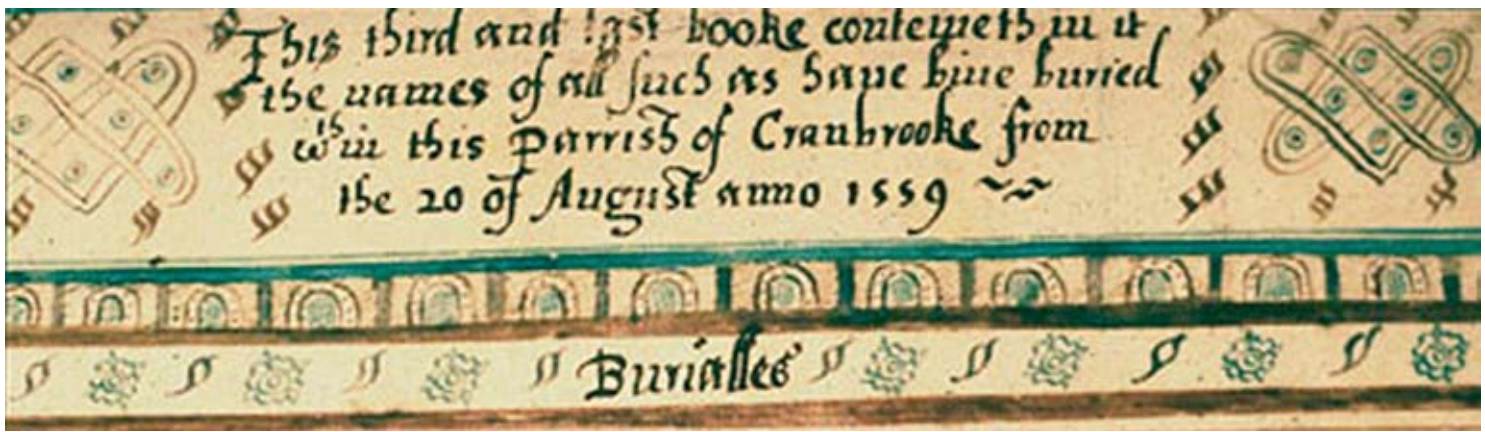 This third and last booke conteineth in it
the names of all such as have bine buried
wth in this Parrish of Cranbrooke from
the 20 of August anno 1559
Burialles